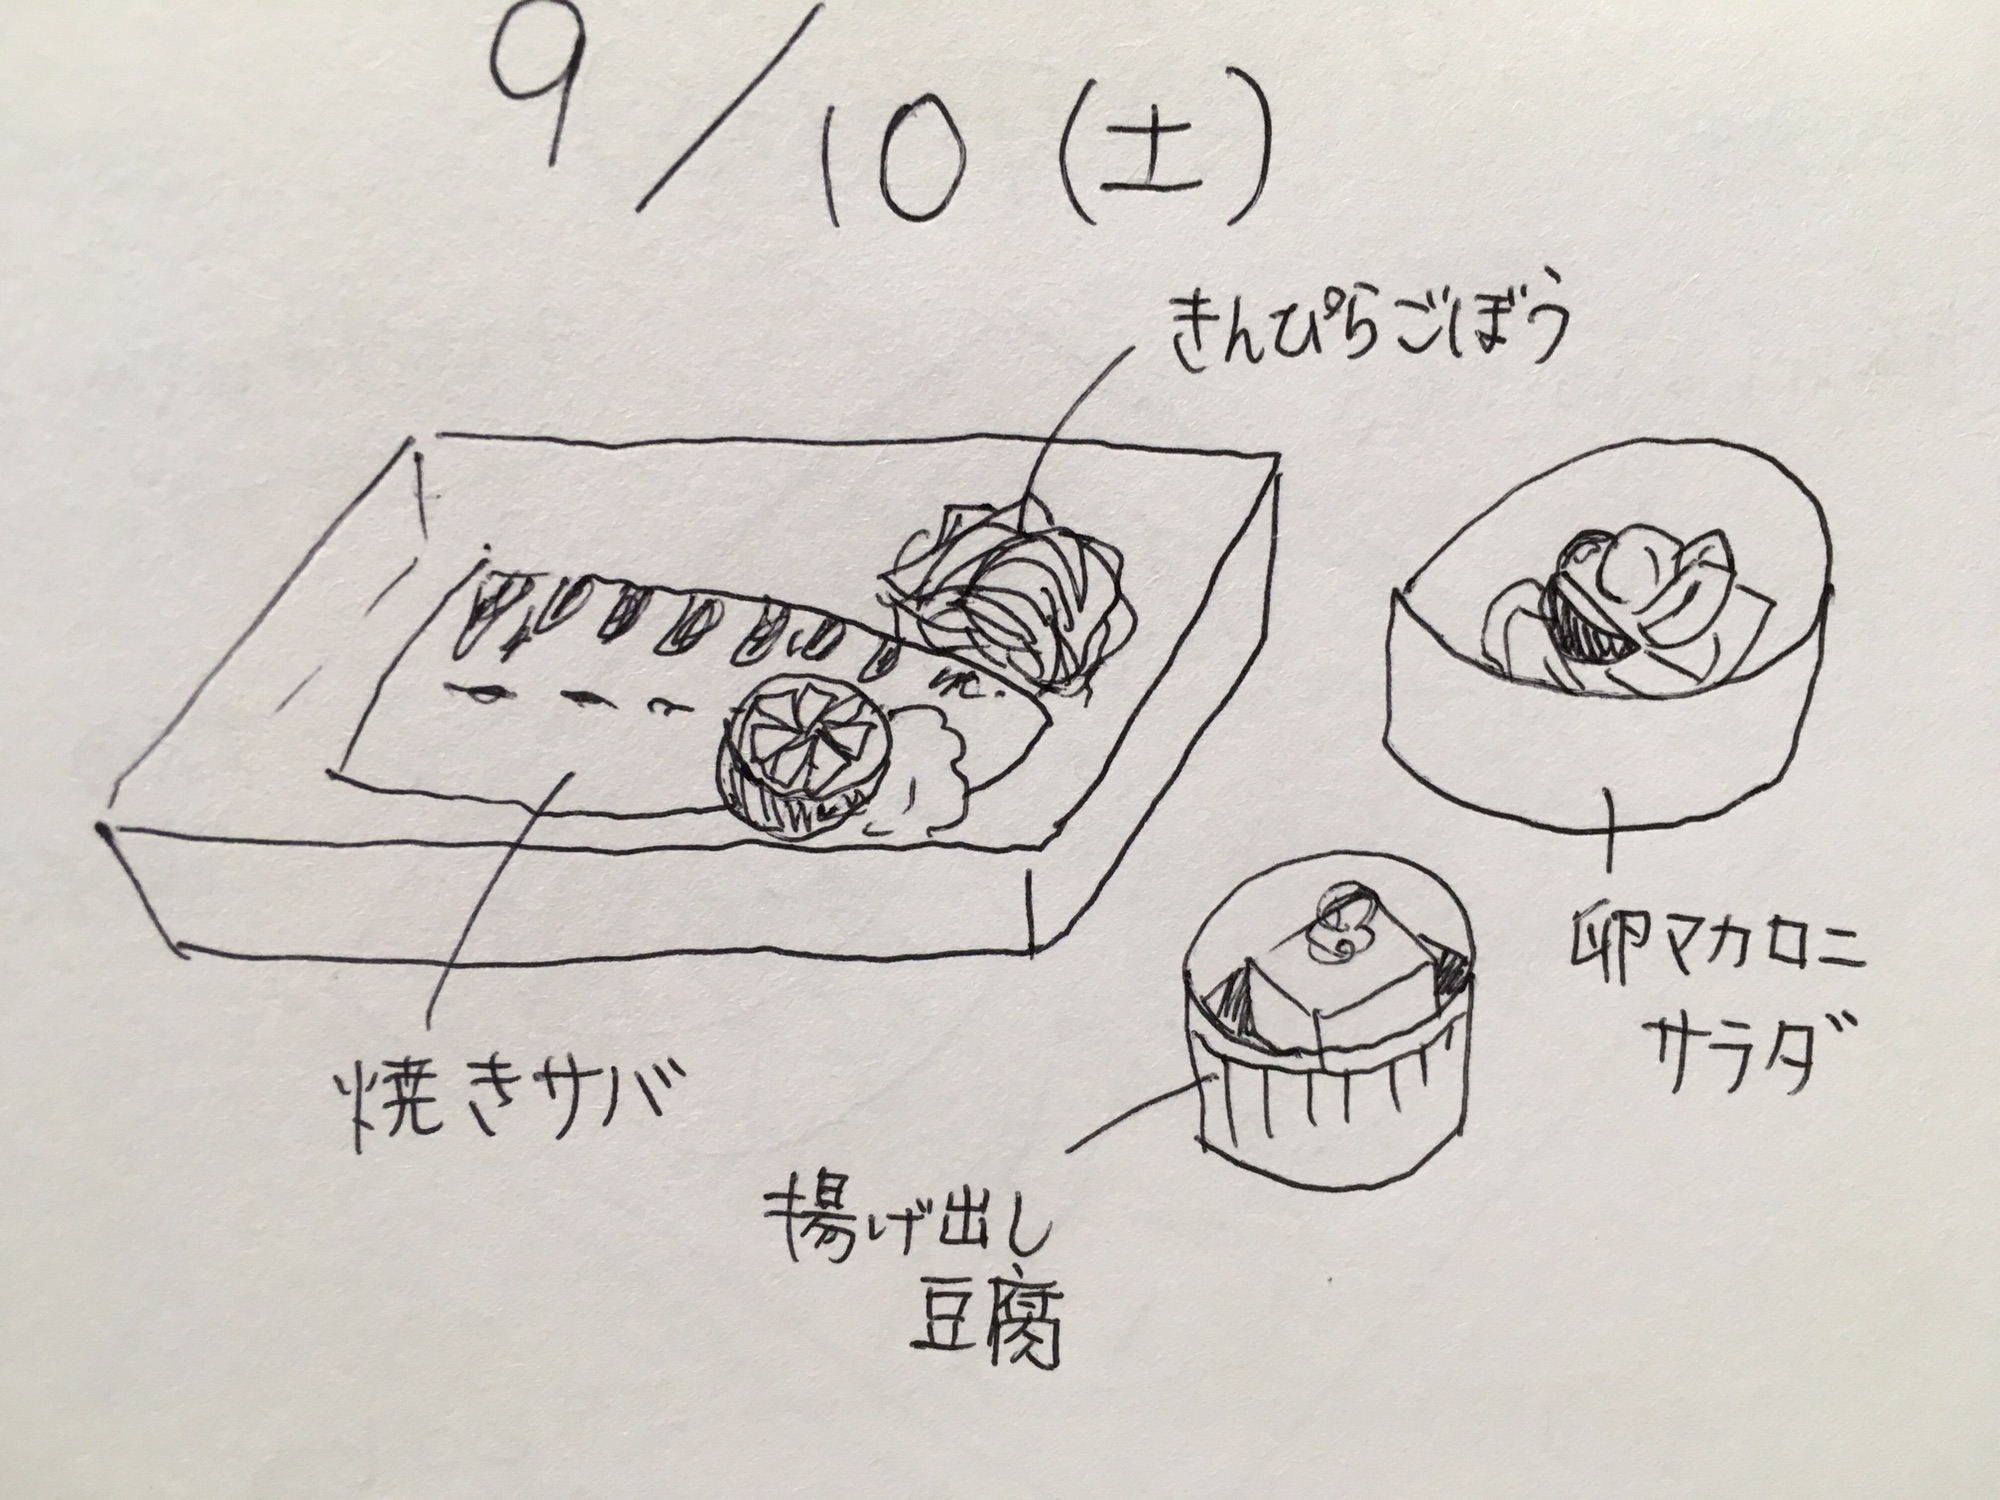 9/10(土)
きんぴらごぼう
卵マカロニ
サラダ
焼きサバ
揚げ出し
豆腐